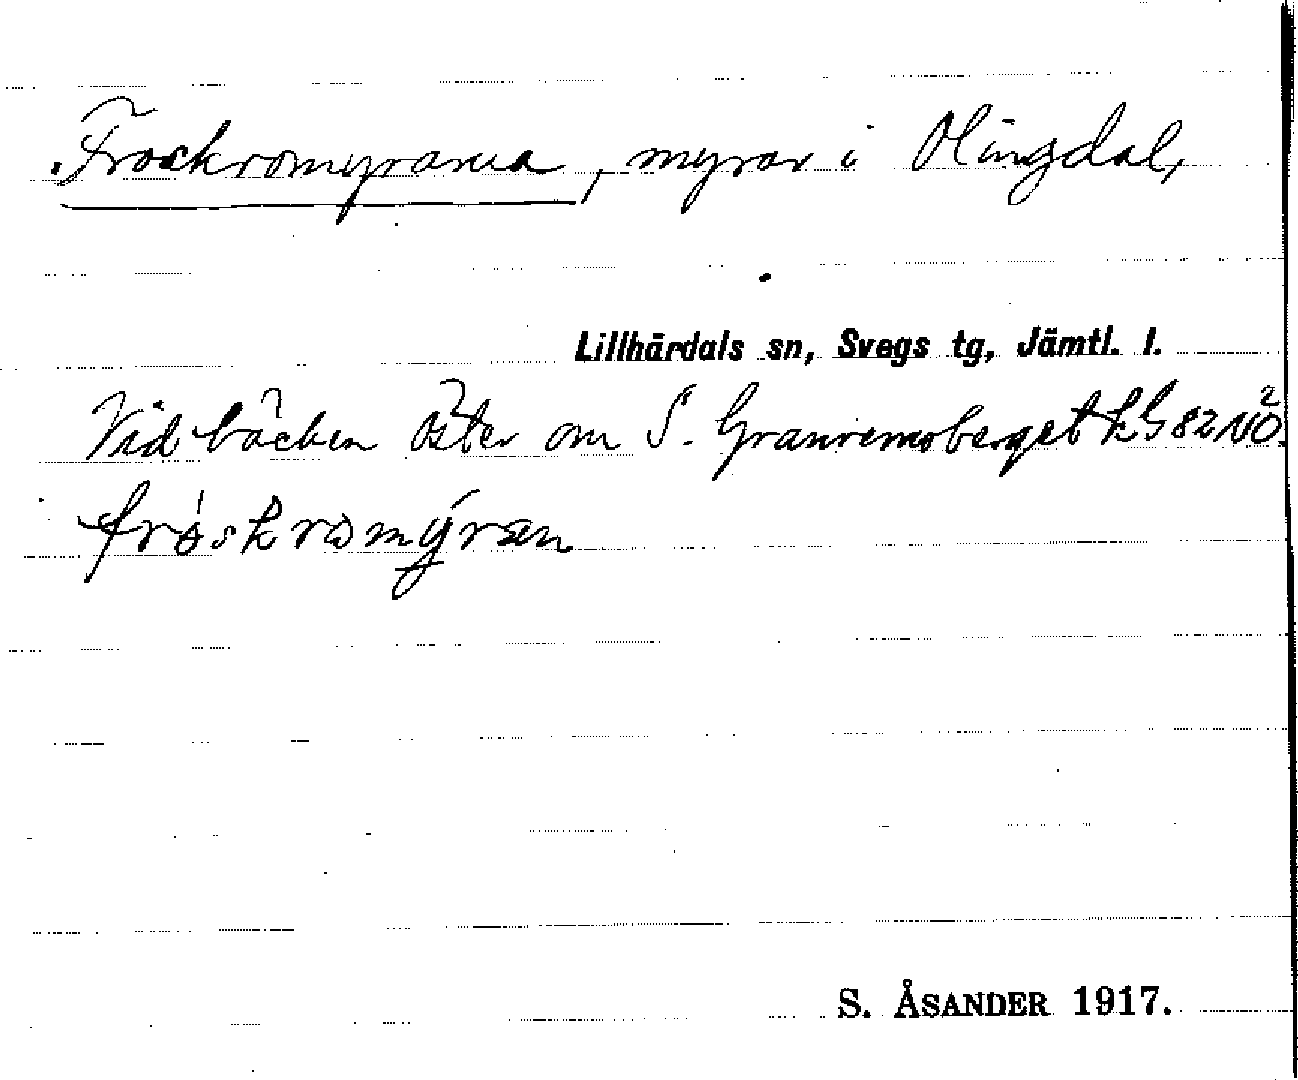 Froskromyrarna, myrar i Olingdal,
Lillhärdals sn, Svegs tg, Jämtl. l.
Vid bäcken öster om S. Granremoberget kG 82 NÖ.
fróskromýran
S. ÅSANDER 1917.